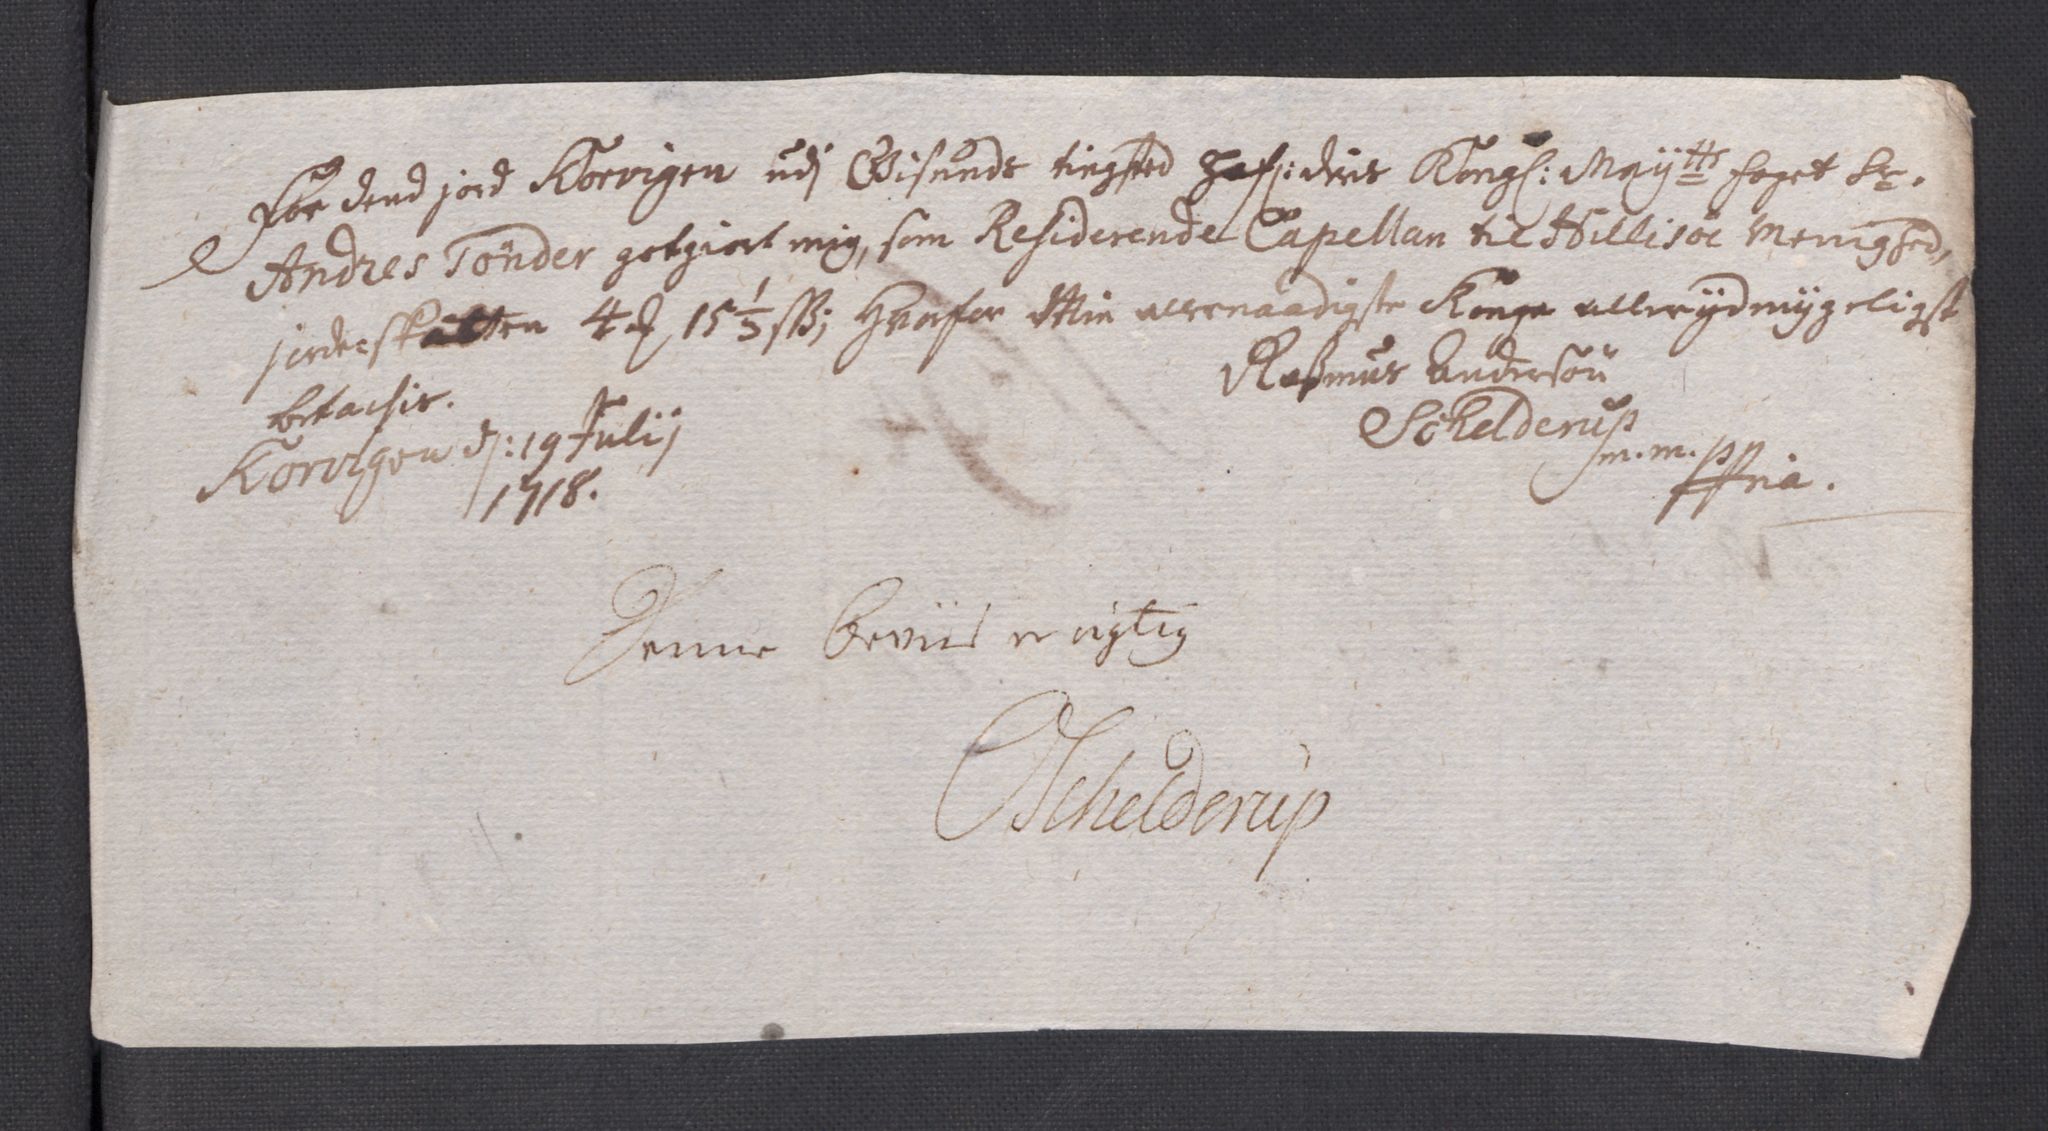 For dend jord Korvigen udj Gisunds tingsted hafr: deris Kongl: Mayttz foget Sr.
Andres Tönder godgiort mig, som Residerende Capellan til Hillisöe Menighed,
jordeskatten 4 15 1/3 ß; Hvorfor Min allernaadigste Konge allerydmygeligst
betachis.
Korvigen d: 19 Julij
1718.
Rasmus Andersön
Schelderup
m. m. ppria.
Denne beviis er rigtig
OSchelderup